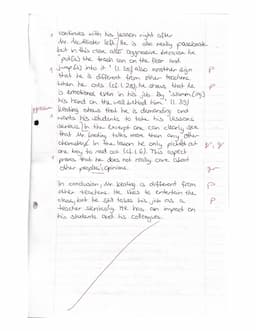 continues with his lesson right after
Mr. McAllister left. He is also really passionate
but in this case also aggressive because he
"put[s] the trash can on the floor and
jump[s] into it" (l. 28) also another sign
that he is different from other teachers.
When he acts (cf. l. 28), he shows that he
is emotional even in his job. By "slamm[ing]
his hand on the wall behind him" (l. 33)
Keating shows that he is demanding and
wants his students to take his lessons
serious. In the excerpt one can clearly see
that Mr. Keating talks more than any other
character. In the lesson he only picked out
one boy to read out (cf. l. 6). This aspect
proves that he does not really care about
other people's opinions.
In conclusion, Mr. Keating is different from
other teachers. He likes to entertain the
class, but he still takes his job as a
teacher seriously. He has an impact on
his students and his colleagues.